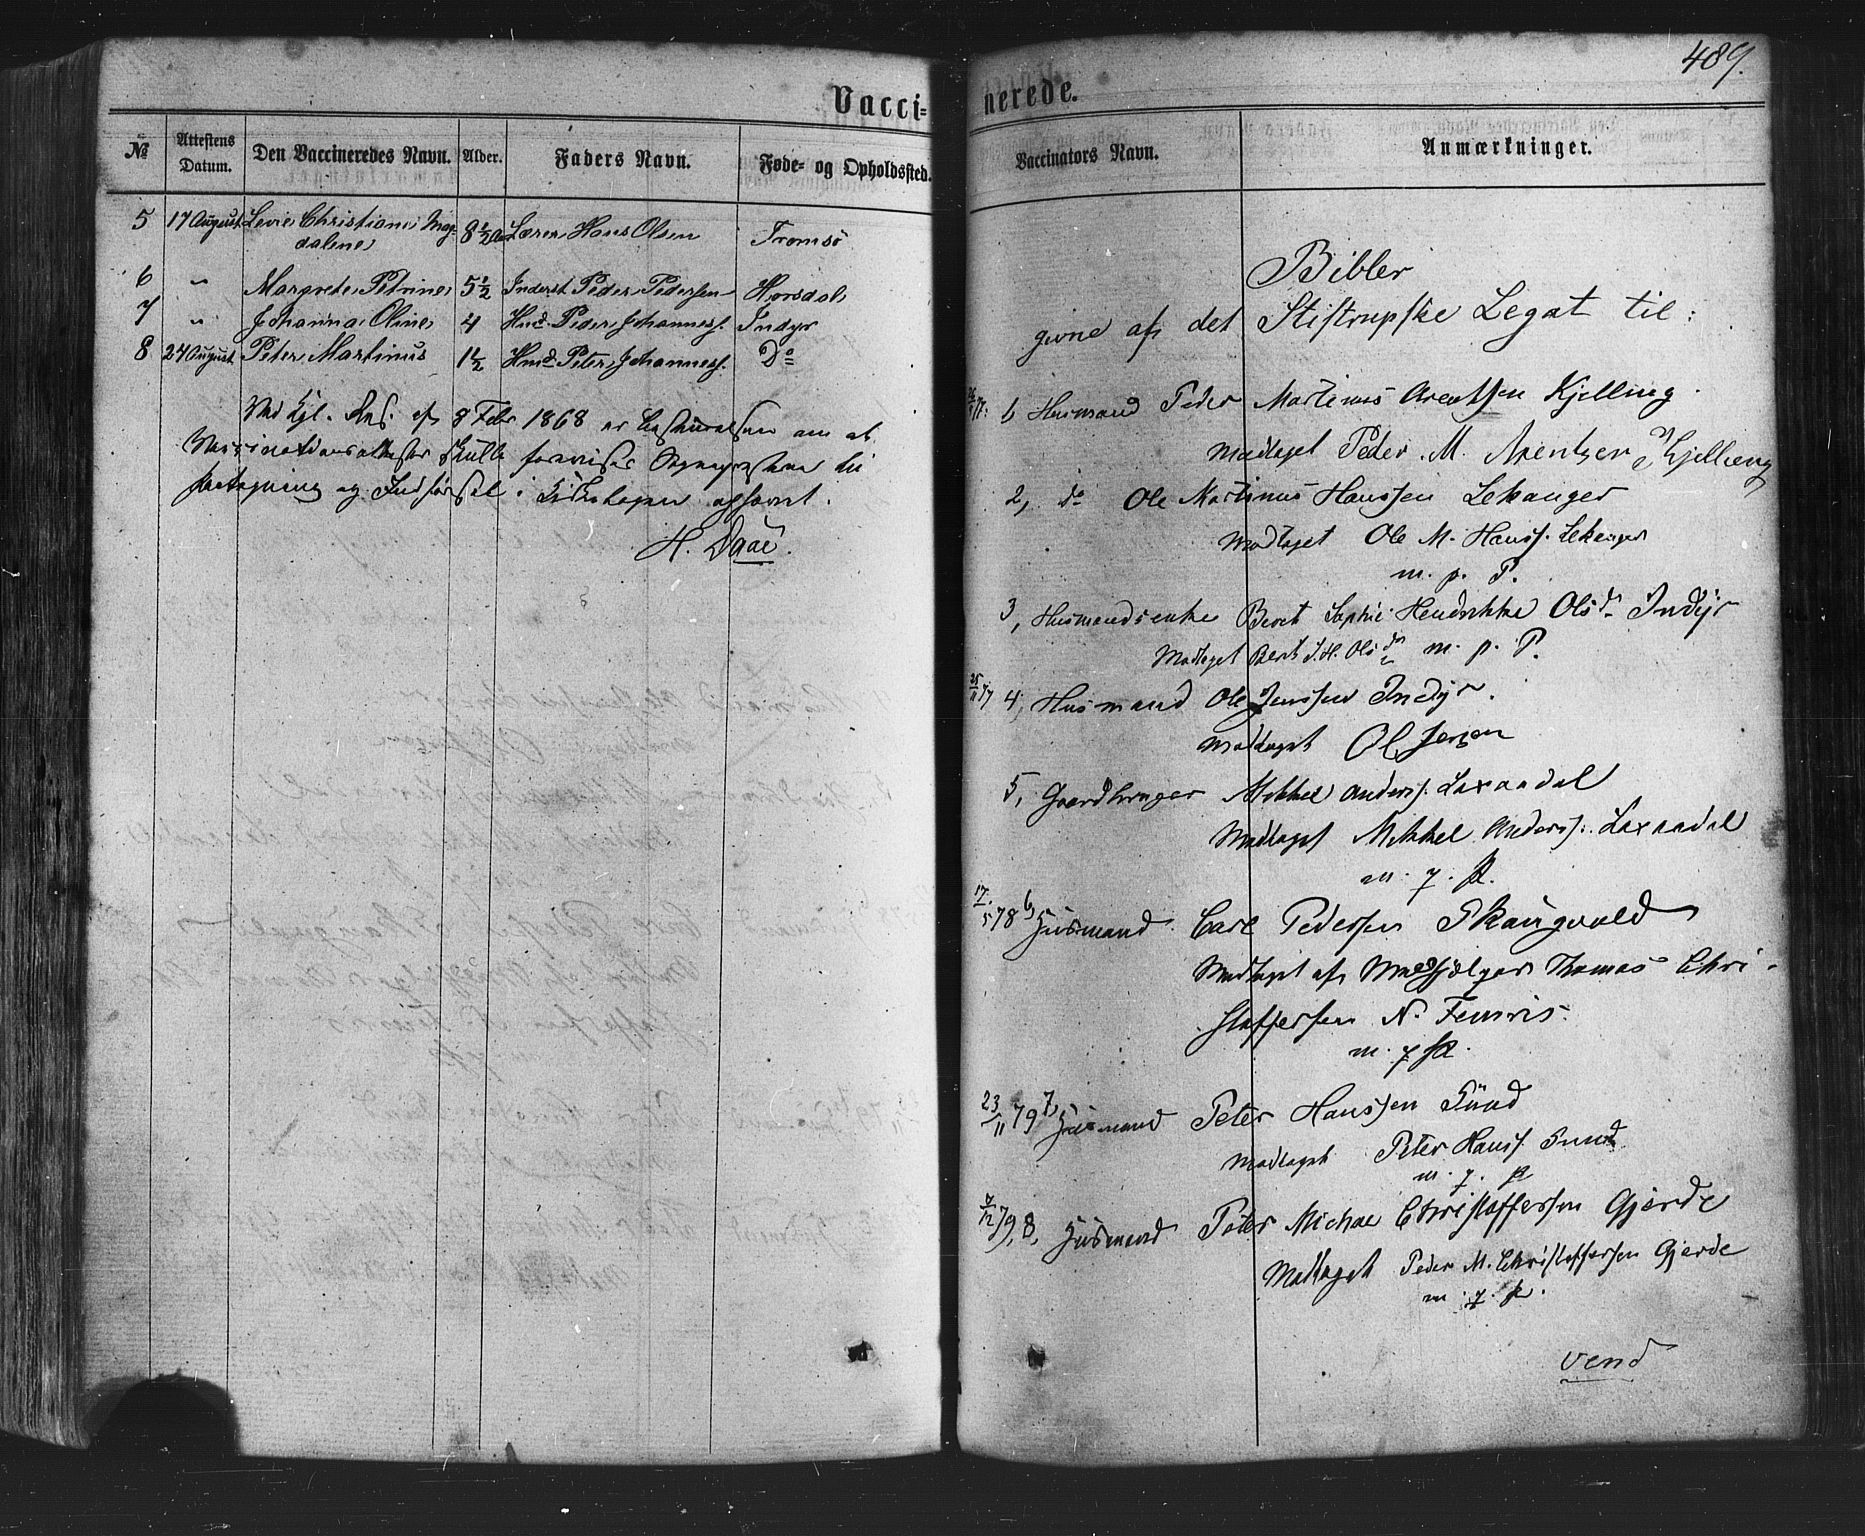 Vacci=
№ Attestens Datum. Den Vaccineredes Navn. Alder. Faders Navn. Føde- og Opholdssted.
5 17 August Levie Christiane Mag- 8½ Lærer Hans Olsen Tromsø
dalene
6 " Margrete Petrine 5½ Inderst Peder Pedersen Horsdal
7 " Johanna Oline 4 Hmd. Peder Johanness. Indyr
8 24 August Peter Martinus 1½ Hmd Peter Johanness. Do
Ved Kgl. Res. af 8 Febr 1868 er Bestemmelsen om at
Vaccinationsattester skulle forevises Sognepresten til
Paategning og Indførsel i Kirkebogen ophævet.
H. Daae.
489.
nerede.
Vaccinators Navn. Anmærkninger.
Bibler
givne af det Stistrupske Legat til:
Husmand Peder Martinus Arentsen Kjelling
Modtaget Peder M. Arentzen Kjelling
2, do Ole Martinus Hanssen Lekanger
Modtaget Ole M. Hanss. Lekanger
m. p. P.
3, Husmandsenke Beret Sophie Hendrikke Olsdr Indyr
Modtaget Beret S. H. Olsdr m. p. P.
25/11 77 4, Husmand Ole Jenssen Indyr.
Modtaget Ole Jensen
5, Gaardbruger Mikkel Anders. Laxaadal
Modtaget Mikkel Anderss. Laxaadal
m. p. P.
17/5 78 6, Husmand Carl Pedersen Skaugvold
Modtaget af Medhjælper Thomas Chri-
stoffersen N. Femris.
m. p. P.
23/11 79 7, Husmand Peter Hanssen Sund
Modtaget Peter Hanss. Sund
m. p. P.
/12 79, 8, Husmand Peter Michae Christoffersen Gjerde
Modtaget Peder M. Christoffersen Gjerde
m. p. P.
vend